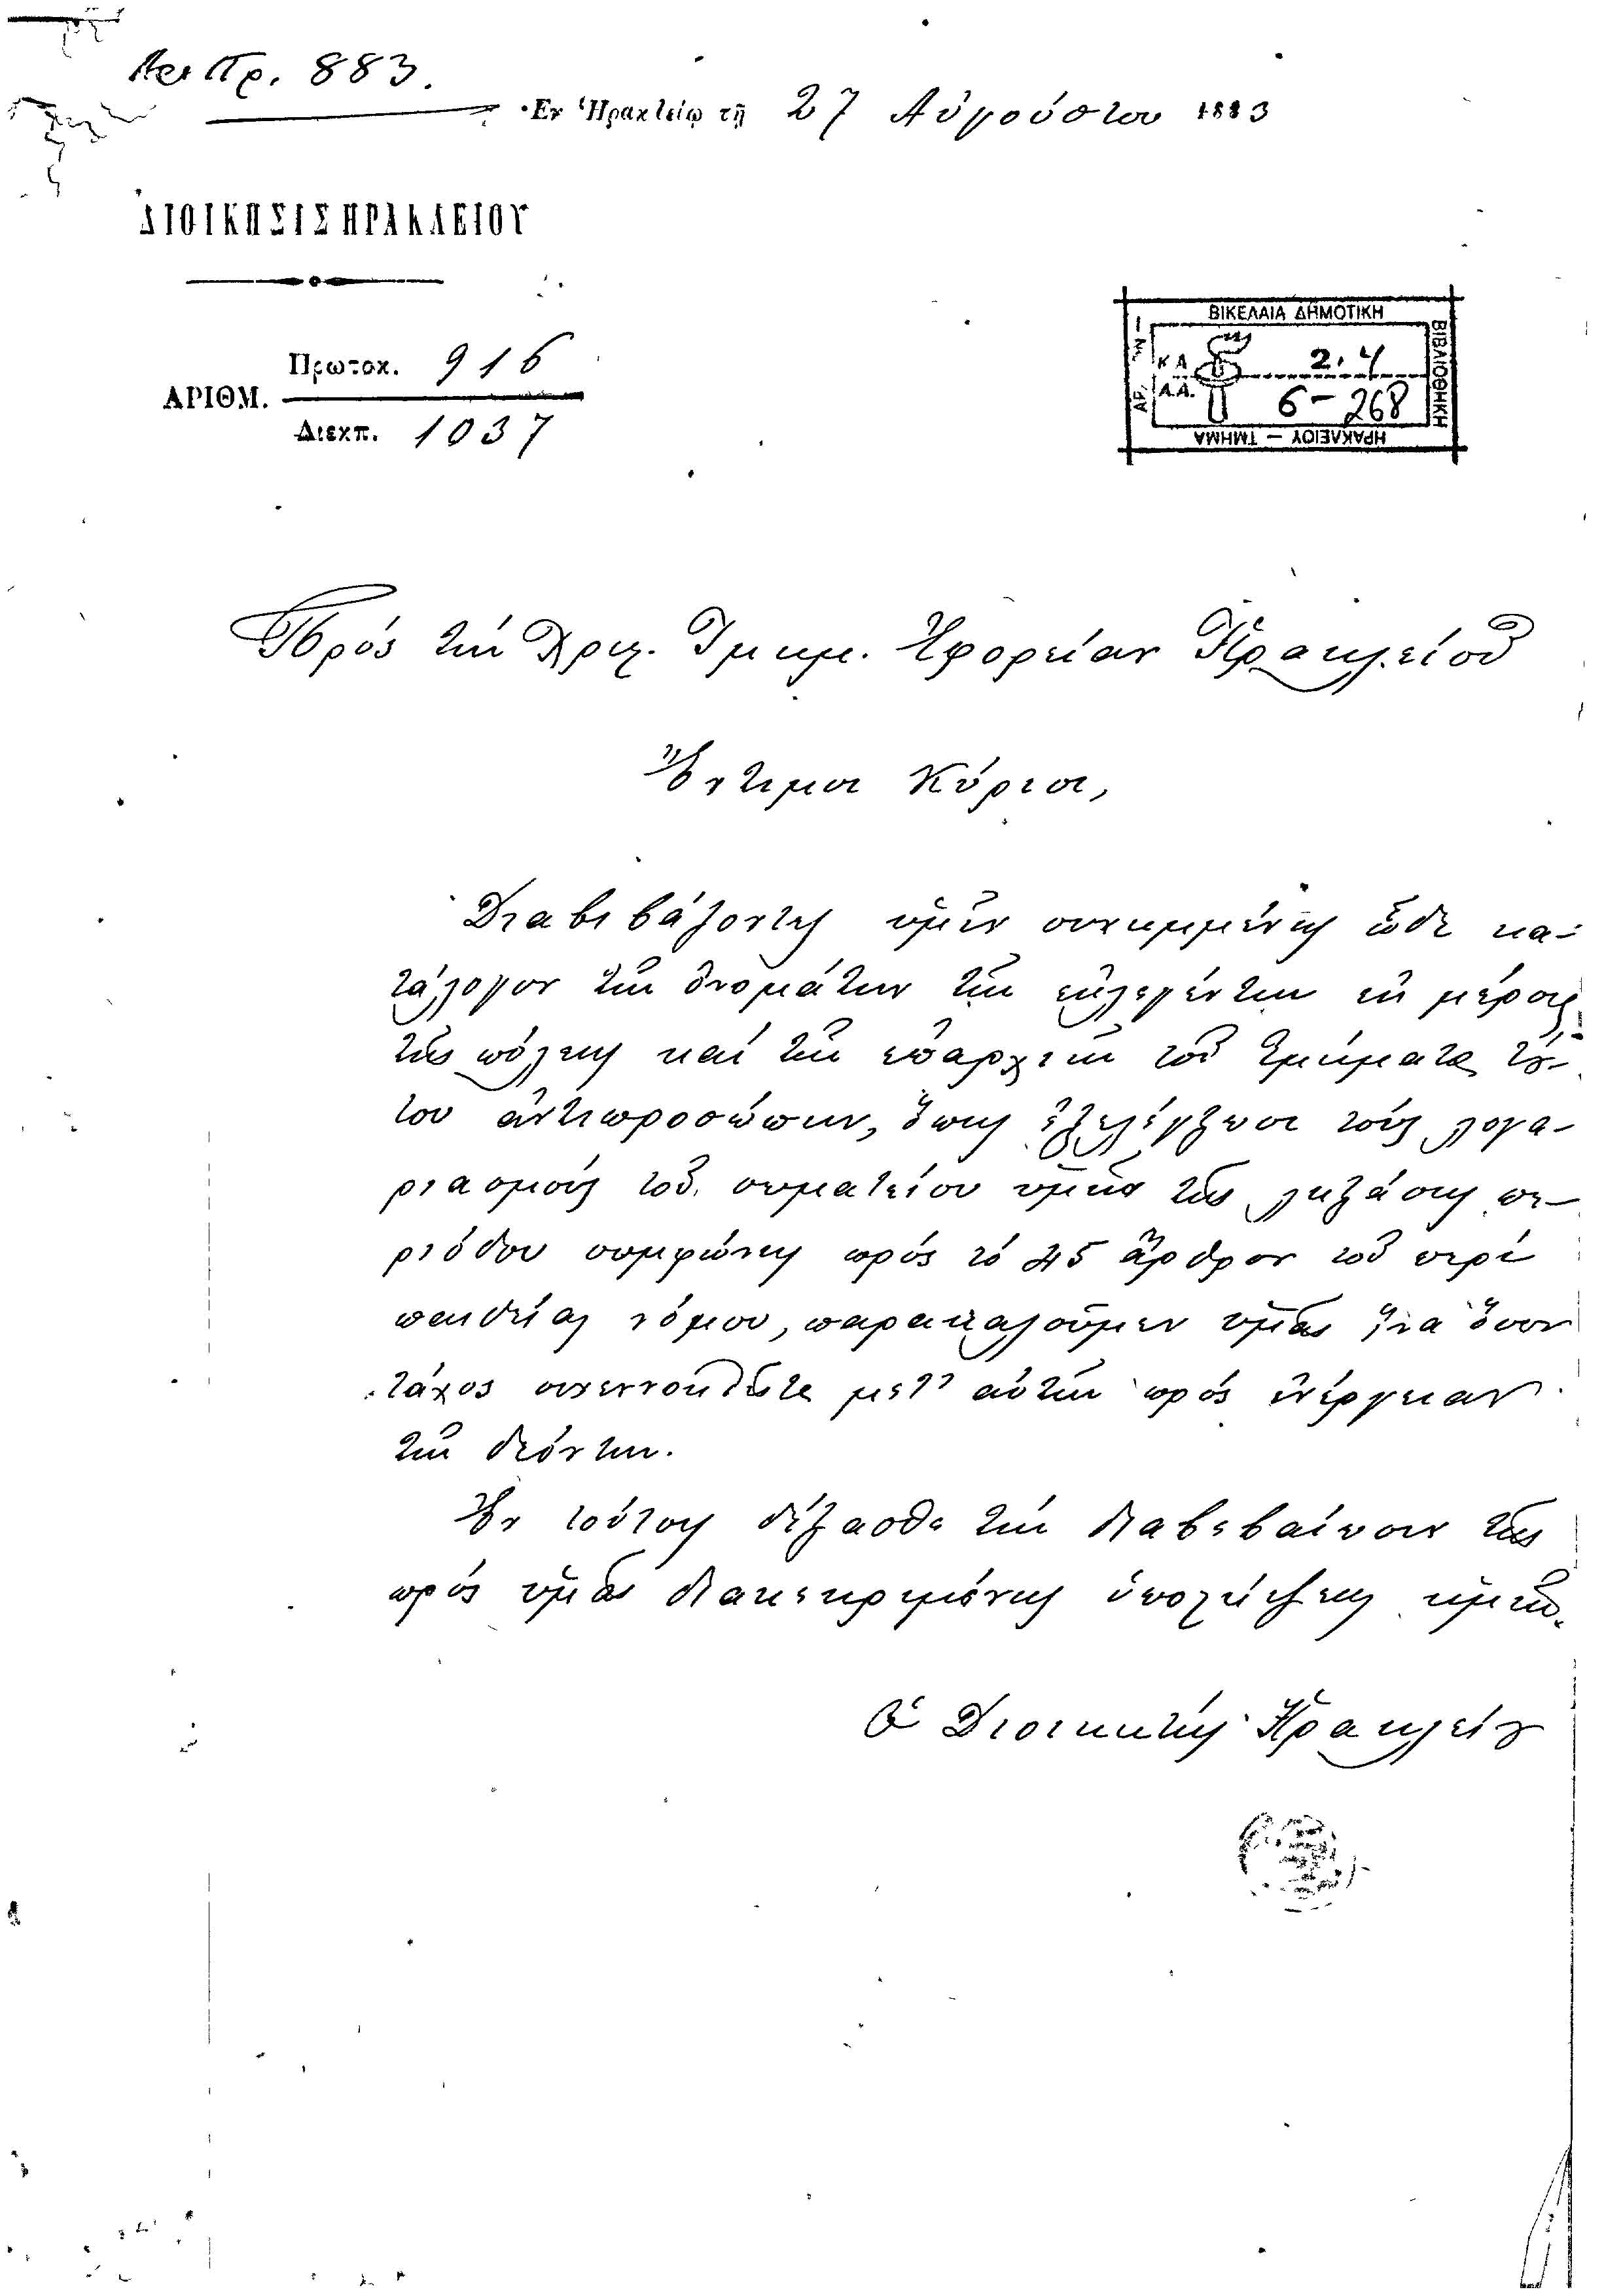 Ἀρ. Πρ. 883.
Ἐν Ἡρακλείῳ τῇ 27 Αὐγούστου 1883
ΔΙΟΙΚΗΣΙΣ ΗΡΑΚΛΕΙΟΥ
ΑΡΙΘΜ. Πρωτοκ. 916
Διεκπ. 1037
ΒΙΚΕΛΑΙΑ ΔΗΜΟΤΙΚΗ
ΒΙΒΛΙΟΘΗΚΗ
ΗΡΑΚΛΕΙΟΥ — ΤΜΗΜΑ
Κ.Δ. 2.4
Α.Α. 6-268
Πρὸς τὴν Χρις. Τμημ. Ἐφορείαν Ἡρακλείου
Ἔντιμοι Κύριοι,
Διαβιβάζοντες ὑμῖν συνημμένως ὧδε κα-
τάλογον τῶν ὀνομάτων τῶν ἐκλεγέντων ἐκ μέρους
τῆς πόλεως καὶ τῶν ἐπαρχιῶν τοῦ τμήματος τού-
του ἀντιπροσώπων, ὅπως ἐξελέγξωσι τοὺς λογα-
ριασμοὺς τοῦ σωματείου ὑμῶν τῆς ληξάσης πε-
ριόδου συμφώνως πρὸς τὸ 45 ἄρθρον τοῦ περὶ
παιδείας νόμου, παρακαλοῦμεν ὑμᾶς ἵνα ὅσον
τάχος συνεννοηθῆτε μετ' αὐτῶν πρὸς ἐνέργειαν
τῶν δεόντων.
Ἐν τούτοις δέξασθε τὴν διαβεβαίωσιν τῆς
πρὸς ὑμᾶς διακεκριμένης ὑπολήψεως ἡμῶν.
Ὁ Διοικητὴς Ἡρακλείου